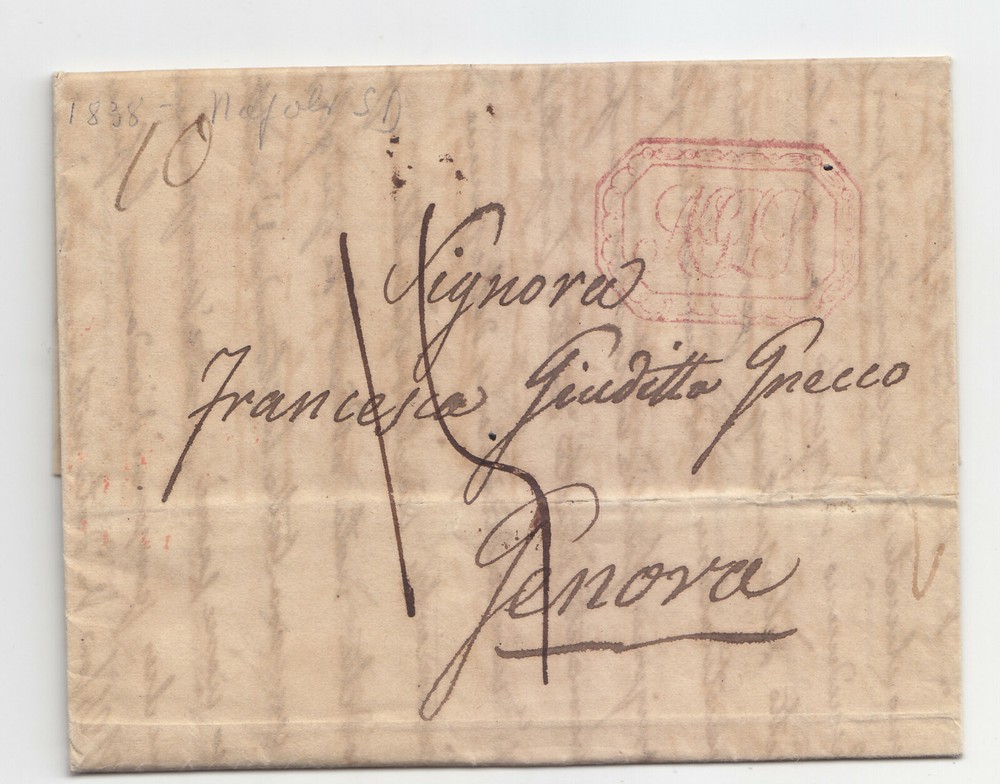 1838 - Napoli SD
10
AGP
15
Signora
Francesca Giuditta Gnecco
Genova